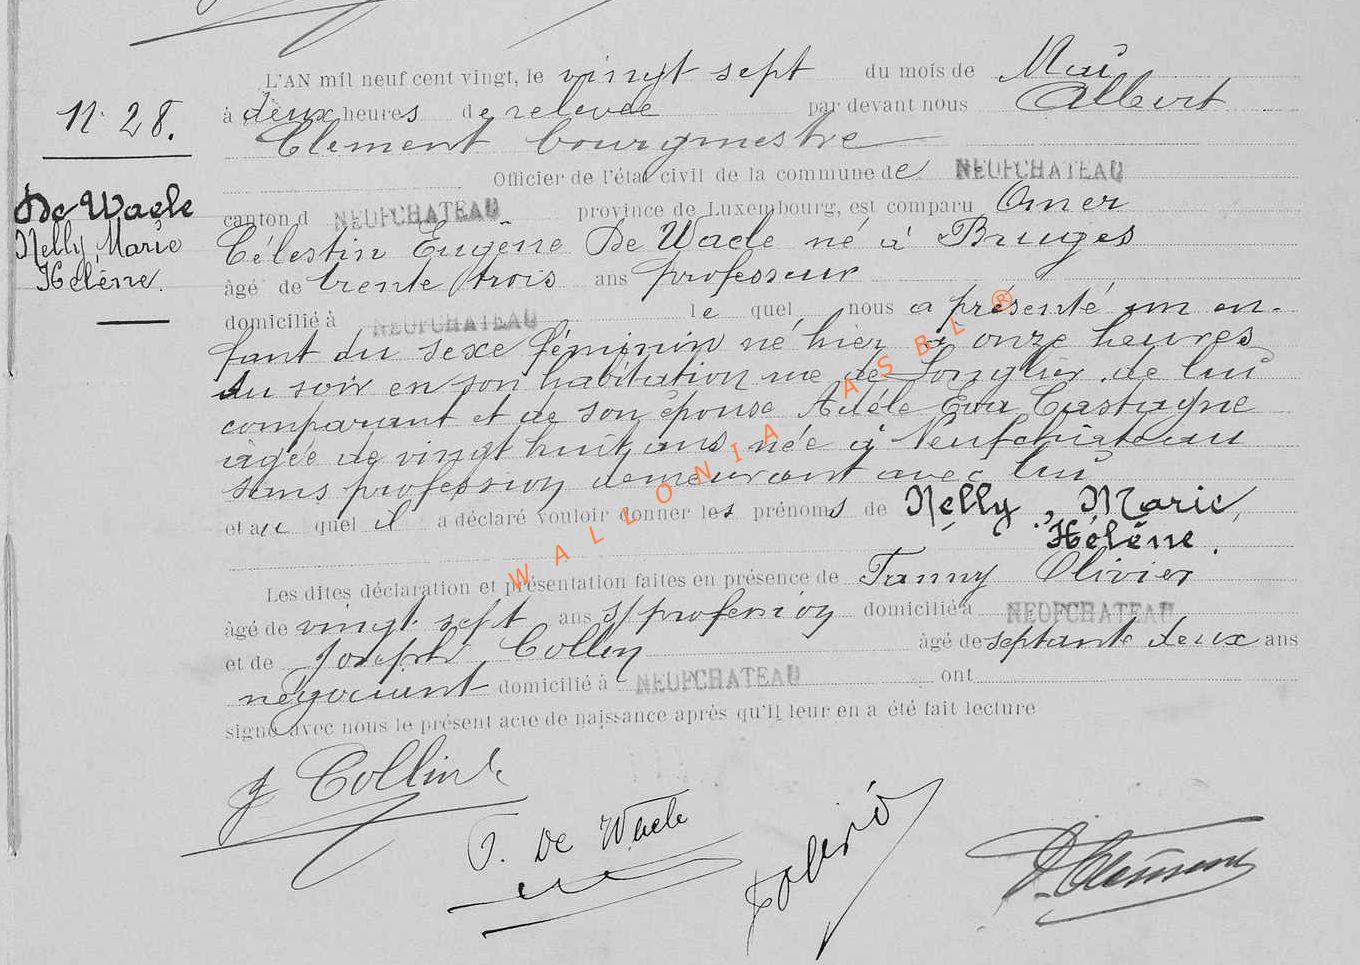 L'AN mil neuf cent vingt, le vingt sept du mois de Mai
N. 28.
à deux heures de relevée par devant nous Albert
Clement bourgmestre
Officier de l'état civil de la commune de NEUFCHATEAU
De Waele
canton d NEUFCHATEAU province de Luxembourg, est comparu Omer
Nelly, Marie
Célestin Eugène De Waele né à Bruges
Hélène.
âgé de trente trois ans professeur
domicilié à NEUFCHATEAU le quel nous a présenté un en-
fant du sexe féminin né hier à onze heures
du soir en son habitation rue de Longlier de lui
comparant et de son épouse Adèle Eva Castagne
âgée de vingt huit ans née à Neufchateau
sans profession demeurant avec lui
et au quel il a déclaré vouloir donner les prénoms de Nelly, Marie,
Hélène.
WALLONIA ASBL ®
Les dites déclaration et présentation faites en présence de Fanny Olivier
âgé de vingt sept ans s/profession domicilié à NEUFCHATEAU
et de Joseph Collin âgé de septante deux ans
négociant domicilié à NEUFCHATEAU ont
signé avec nous le présent acte de naissance après qu'il leur en a été fait lecture
J Collin
O. De Waele
Clément